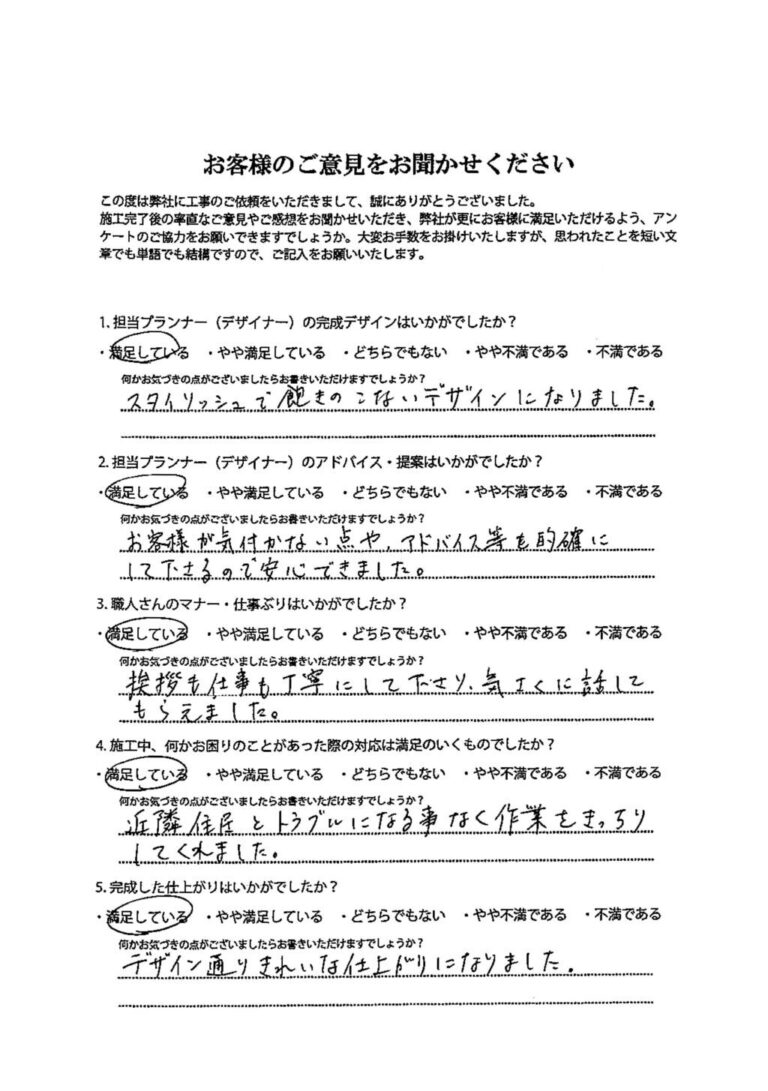 お客様のご意見をお聞かせください
この度は弊社に工事のご依頼をいただきまして、誠にありがとうございました。
施工完了後の率直なご意見やご感想をお聞かせいただき、弊社が更にお客様に満足いただけるよう、アン
ケートのご協力をお願いできますでしょうか。大変お手数をお掛けいたしますが、思われたことを短い文
章でも単語でも結構ですので、ご記入をお願いいたします。
1. 担当プランナー（デザイナー）の完成デザインはいかがでしたか？
・満足している ・やや満足している ・どちらでもない ・やや不満である ・不満である
何かお気づきの点がございましたらお書きいただけますでしょうか？
スタイリッシュで飽きのこないデザインになりました。
2. 担当プランナー（デザイナー）のアドバイス・提案はいかがでしたか？
・満足している ・やや満足している ・どちらでもない ・やや不満である ・不満である
何かお気づきの点がございましたらお書きいただけますでしょうか？
お客様が気付かない点や、アドバイス等も的確に
して下さるので安心できました。
3. 職人さんのマナー・仕事ぶりはいかがでしたか？
・満足している ・やや満足している ・どちらでもない ・やや不満である ・不満である
何かお気づきの点がございましたらお書きいただけますでしょうか？
挨拶も仕事も丁寧にして下さり、気さくに話して
もらえました。
4. 施工中、何かお困りのことがあった際の対応は満足のいくものでしたか？
・満足している ・やや満足している ・どちらでもない ・やや不満である ・不満である
何かお気づきの点がございましたらお書きいただけますでしょうか？
近隣住民とトラブルになる事なく作業をきっちり
してくれました。
5. 完成した仕上がりはいかがでしたか？
・満足している ・やや満足している ・どちらでもない ・やや不満である ・不満である
何かお気づきの点がございましたらお書きいただけますでしょうか？
デザイン通りきれいな仕上がりになりました。